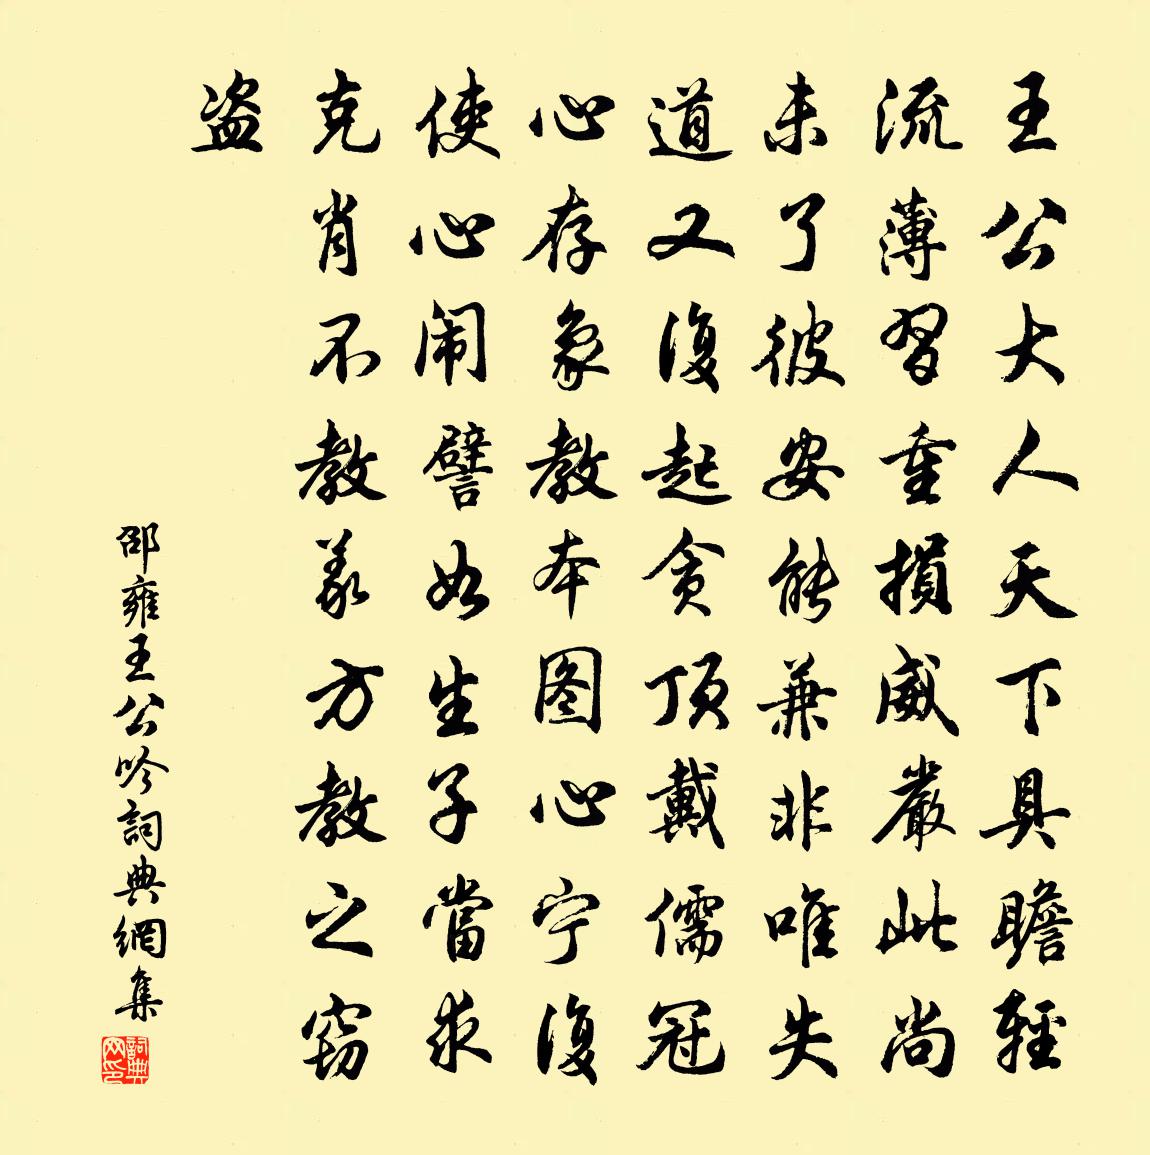 王公大人天下具瞻輕
流薄習重損威嚴此尚
未了彼安能兼非唯失
道又復起贪頂戴儒冠
心存象教本图心宁復
使心闹譬如生子當求
克肖不教義方教之窃
盗
邵雍王公吟詞典網集
詞典网印